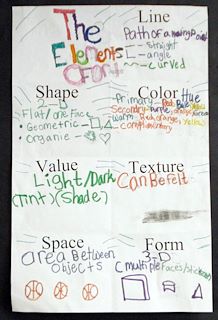 The
Elements
of Art
Line
Path of a moving Point
- straight
- angle
- curved
Shape
2-D
Flat/one Face
• Geometric -
• Organic -
Color
Hue
Primary - Red, Blue, Yellow
Secondary - purple, orange, green
Warm - Red, orange, yellow
- complimentary
Value
Light/Dark
(Tint) (Shade)
Texture
Can Be felt
Space
area Between
Objects
Form
3-D
multiple Faces/